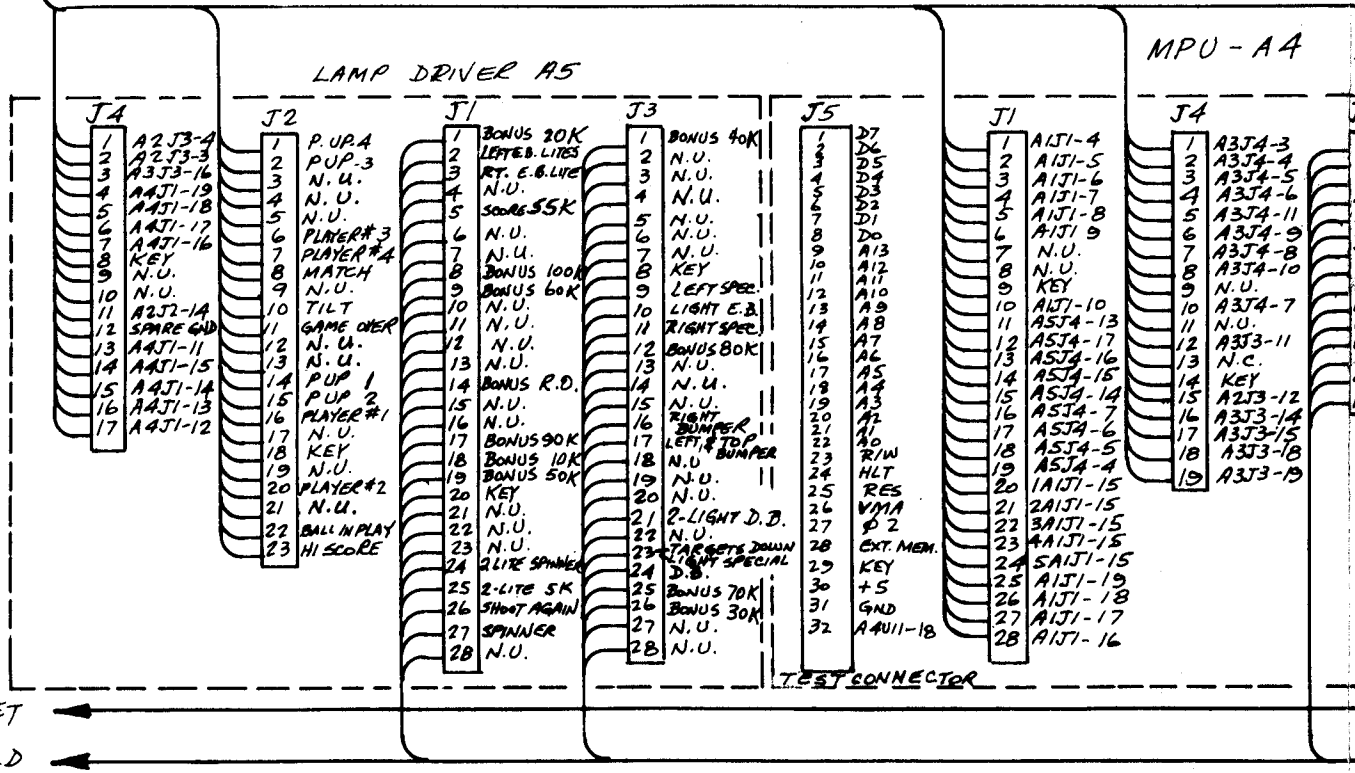 MPU-A4
LAMP DRIVER A5
J4
1 A2J3-4
2 A2J3-3
3 A3J3-16
4 A4J1-19
5 A4J1-18
6 A4J1-17
7 A4J1-16
8 KEY
9 N.U.
10 N.U.
11 A2J2-14
12 SPARE GND
13 A4J1-11
14 A4J1-15
15 A4J1-14
16 A4J1-13
17 A4J1-12
J2
1 P.UP.4
2 PUP.3
3 N.U.
4 N.U.
5 N.U.
6 PLAYER#3
7 PLAYER#4
8 MATCH
9 N.U.
10 TILT
11 GAME OVER
12 N.U.
13 N.U.
14 PUP 1
15 PUP 2
16 PLAYER#1
17 N.U.
18 KEY
19 N.U.
20 PLAYER#2
21 N.U.
22 BALL IN PLAY
23 HI SCORE
J1
1 BONUS 20K
2 LEFT E.B. LITES
3 RT. E.B. LITE
4 N.U.
5 SCORES 5K
6 N.U.
7 N.U.
8 BONUS 100K
9 BONUS 60K
10 N.U.
11 N.U.
12 N.U.
13 N.U.
14 BONUS R.O.
15 N.U.
16 N.U.
17 BONUS 90K
18 BONUS 10K
19 BONUS 50K
20 KEY
21 N.U.
22 N.U.
23 N.U.
24 2 LITE SPINNER
25 2-LITE 5K
26 SHOOT AGAIN
27 SPINNER
28 N.U.
J3
1 BONUS 40K
2 N.U.
3 N.U.
4 N.U.
5 N.U.
6 N.U.
7 N.U.
8 KEY
9 LEFT SPEC.
10 LIGHT E.B.
11 RIGHT SPEC.
12 BONUS 80K
13 N.U.
14 N.U.
15 N.U.
16 RIGHT BUMPER
17 LEFT & TOP BUMPER
18 N.U
19 N.U.
20 N.U.
21 2-LIGHT D.B.
22 N.U.
23 TARGETS DOWN LIGHT SPECIAL
24 D.B.
25 BONUS 70K
26 BONUS 30K
27 N.U.
28 N.U.
J5
1 D7
2 D6
3 D5
4 D4
5 D3
6 D2
7 D1
8 D0
9 A13
10 A12
11 A11
12 A10
13 A9
14 A8
15 A7
16 A6
17 A5
18 A4
19 A3
20 A2
21 A1
22 A0
23 R/W
24 HLT
25 RES
26 VMA
27 φ2
28 EXT. MEM.
29 KEY
30 +5
31 GND
32 A4U11-18
TEST CONNECTOR
J1
1 A1J1-4
2 A1J1-5
3 A1J1-6
4 A1J1-7
5 A1J1-8
6 A1J1 9
7 N.U.
8 N.U.
9 KEY
10 A1J1-10
11 A5J4-13
12 A5J4-17
13 A5J4-16
14 A5J4-15
15 A5J4-14
16 A5J4-7
17 A5J4-6
18 A5J4-5
19 A5J4-4
20 1A1J1-15
21 2A1J1-15
22 3A1J1-15
23 4A1J1-15
24 5A1J1-15
25 A1J1-19
26 A1J1-18
27 A1J1-17
28 A1J1-16
J4
1 A3J4-3
2 A3J4-4
3 A3J4-5
4 A3J4-6
5 A3J4-11
6 A3J4-9
7 A3J4-8
8 A3J4-10
9 N.U.
10 A3J4-7
11 N.U.
12 A3J3-11
13 N.C.
14 KEY
15 A2J3-12
16 A3J3-14
17 A3J3-15
18 A3J3-18
19 A3J3-19